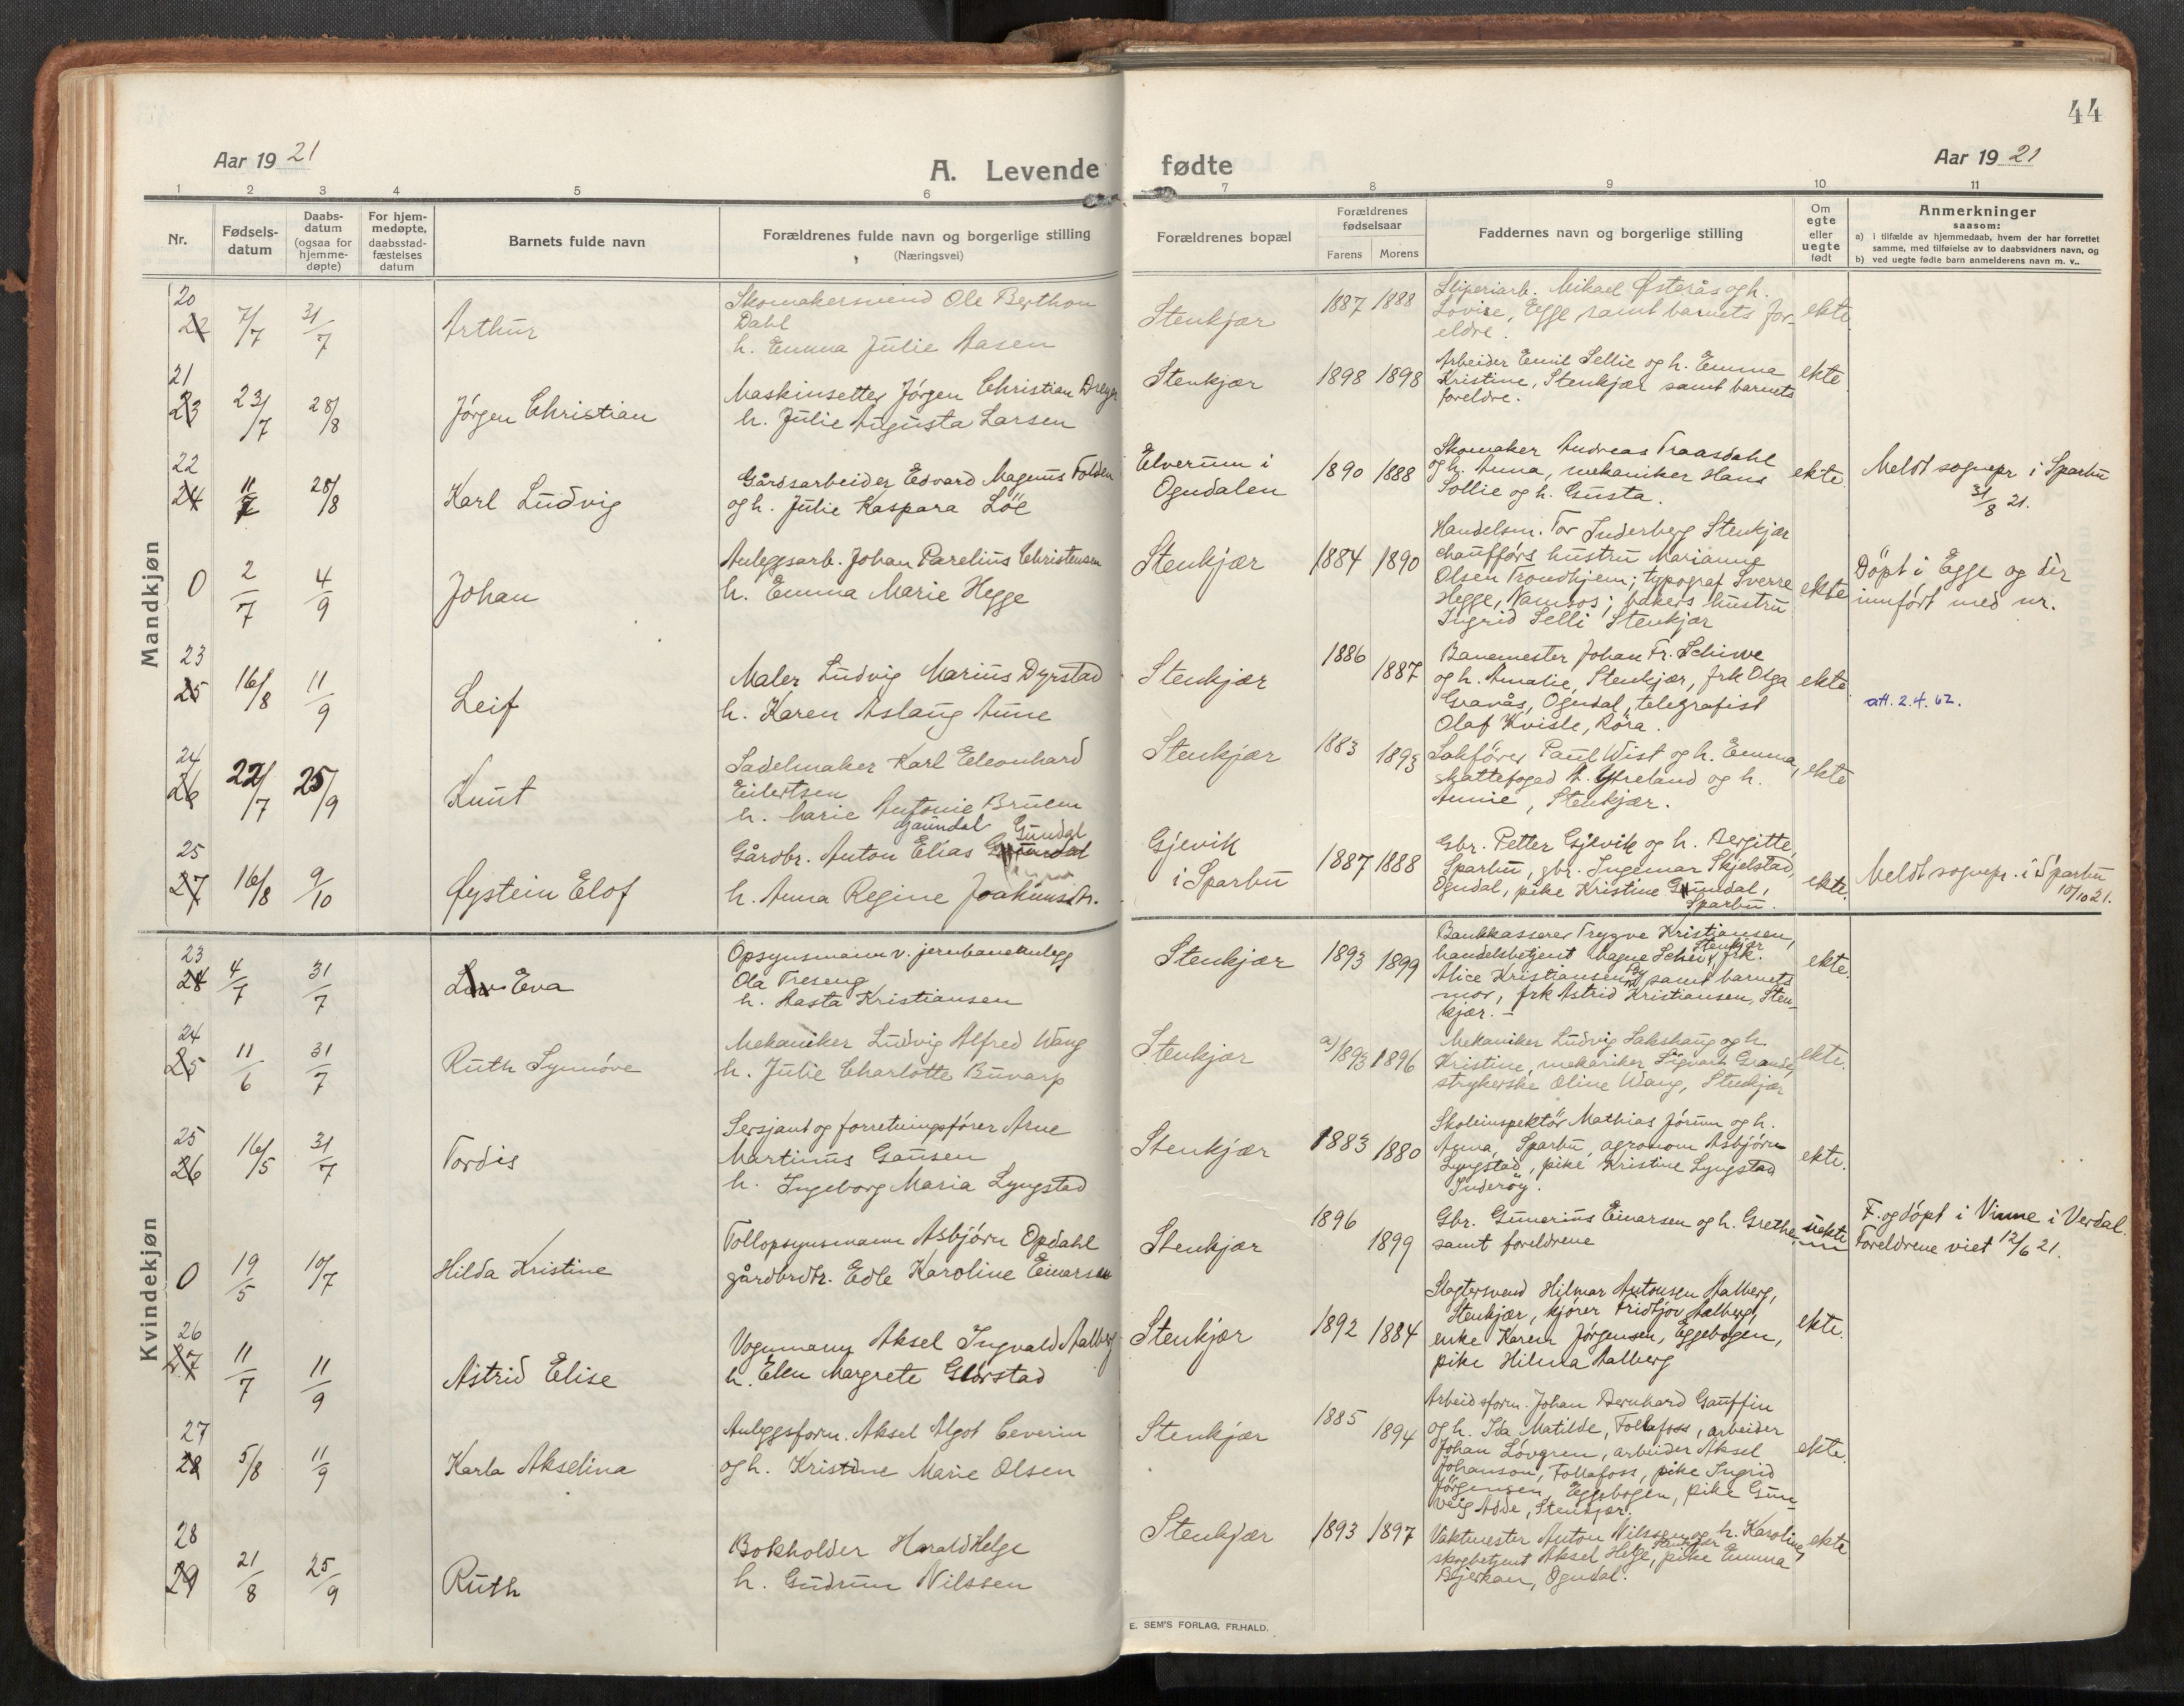 44
Aar 1921
A. Levende fødte
Aar 1921
1 2 3 4 5 6 7 8 9 10 11
Nr.
Fødsels-
datum
Daabs-
datum
(ogsaa for
hjemme-
døpte)
For hjem-
medøpte,
daabsstad-
fæstelses
datum
Barnets fulde navn
Forældrenes fulde navn og borgerlige stilling
(Næringsvei)
Forældrenes bopæl
Forældrenes
fødselsaar
Farens Morens
Faddernes navn og borgerlige stilling
Om
egte
eller
uegte
født
Anmerkninger
saasom:
a) i tilfælde av hjemmedaab, hvem der har forrettet
samme, med tilføielse av to daabsvidners navn, og
b) ved uegte fødte barn anmelderens navn m. v..
Mandkjøn
20
22 7/7 31/7 Arthur
Skomakersvend Ole Berthon
Dahl
h. Emma Julie Aasen
Stenkjær 1887 1888
Sliperiarb. Mikael Østerås og h.
Lovise, Egge samt barnets for-
eldre.
ekte.
21
23 23/7 28/8 Jørgen Christian
Maskinsetter Jørgen Christian Dreyer
h. Julie Augusta Larsen
Stenkjær 1898 1898
Arbeider Emil Sellie og h. Emma
Kristine, Stenkjær samt barnets
foreldre.
ekte.
22
24 11/7 28/8 Karl Ludvig
Gårdsarbeider Edvard Magnus Folden
og h. Julie Kaspara Löe
Elverum i
Ogndalen
1890 1888
Skomaker Andreas Traasdahl
og h. Anna, mekaniker Hans
Sollie og h. Gusta.
ekte.
Meldt sognepr. i Sparbu
31/8 21.
0 2/7 4/9 Johan
Anleggsarb. Johan Parelius Christensen
h. Emma Marie Hegge
Stenkjær 1884 1890
Handelsm. Tor Inderberg Stenkjær
chaufförs hustru Marianne
Olsen Trondhjem; typograf Sverre
Hegge, Namsos; bakers hustru
Ingrid Selli Stenkjær
ekte
Döpt i Egge og dèr
innfört med nr.
23
25 16/8 11/9 Leif
Maler Ludvig Marius Dyrstad
h. Karen Aslaug Aune
Stenkjær 1886 1887
Banemester Johan Fr. Schiwe
og h. Amalie, Stenkjær, frk Olga
Gravås, Ogndal, telegrafist
Olaf Kvisle, Röra.
ekte
att. 2.4.62.
24
26 22/7 25/9 Knut
Sadelmaker Karl Eleonhard
Eilertsen
h. Marie Antonie Bruem
Stenkjær 1883 1893
Sakförer Paul Wist og h. Emma,
skattefoged A. Ytreland og h.
Annie, Stenkjær.
ekte
25
27 16/8 9/10 Øystein Elof
Gaundal Gundal
Gårdbr. Anton Elias
h. Anna Regine Joakimsdtr.
Gjevik
i Sparbu
1887 1888
Gbr. Petter Gjevik og h. Bergitte,
Sparbu, gbr. Ingemar Skjelstad,
Ogndal, pike Kristine Gundal,
Sparbu.
ekte.
Meldt sognepr. i Sparbu
10/10 21.
Kvindekjøn
23
24 4/7 31/7 Liv Eva
Opsynsmann v. jernbaneanlegg
Ola Treseng
h. Aasta Kristiansen
Stenkjær 1893 1899
Bankkasserer Trygve Kristiansen,
Stenkjær
handelsbetjent Magne Schei, frk.
Alice Kristiansen samt barnets
mor, frk Astrid Kristiansen, Sten-
kjær. –
ekte.
24
25 11/6 31/7 Ruth Synnöve
Mekaniker Ludvig Alfred Wang
h. Julie Charlotte Buvarp
Stenkjær a) 1893 1896
Mekaniker Ludvig Sakshaug og h.
Kristine, mekaniker Sigvart Grande,
strykerske Oline Wang, Stenkjær
ekte.
25
26 16/5 31/7 Tordis
Sersjant og forretningsförer Arne
Martinus Gausen
h. Ingeborg Maria Lyngstad
Stenkjær 1883 1880
Skoleinspektör Mathias Jörum og h.
Anna, Sparbu, agronom Asbjörn
Lyngstad, pike Kristine Lyngstad
Inderöy.
ekte.
0 19/5 10/7 Hilda Kristine
Tollopsynsmann Asbjörn Opdahl
gårdbrdtr. Edle Karoline Einarsen
Stenkjær 1896 1899
Gbr. Gunerius Einarsen og h. Grethe
samt foreldrene
uekte
F. og döpt i Vinne i Verdal.
Foreldrene viet 12/6 21.
26
27 11/7 11/9 Astrid Elise
Vognmann Aksel Ingvald Aalberg
h. Elen Margrete Glörstad
Stenkjær 1892 1884
Slagtersvend Hilmar Antonsen Aalberg,
Stenkjær, kjörer Fridtjov Aalberg,
enke Karen Jörgensen, Eggebogen,
pike Hilma Aalberg
ekte.
27
28 5/8 11/9 Karla Akselina
Anleggsform. Aksel Algot Ceverin
og h. Kristine Marie Olsen
Stenkjær 1885 1894
Arbeidsform. Johan Bernhard Gauffin
og h. Ida Matilde, Follafoss, arbeider
Johan Lövgren, arbeider Aksel
Johanson, Follafoss, pike Ingrid
Jörgensen, Eggebogen, pike Gun-
veig Adde, Stenkjær.
ekte.
28
29 21/8 25/9 Ruth
Bokholder Harald Helge
h. Gudrun Nilssen
Stenkjær 1893 1897
Vaktmester Anton Nilssen og h. Karoline,
Stenkjær
skogbetjent Aksel Helge, pike Emma
Bjerkan, Ogndal.
ekte
E. SEM'S FORLAG, FR.HALD.